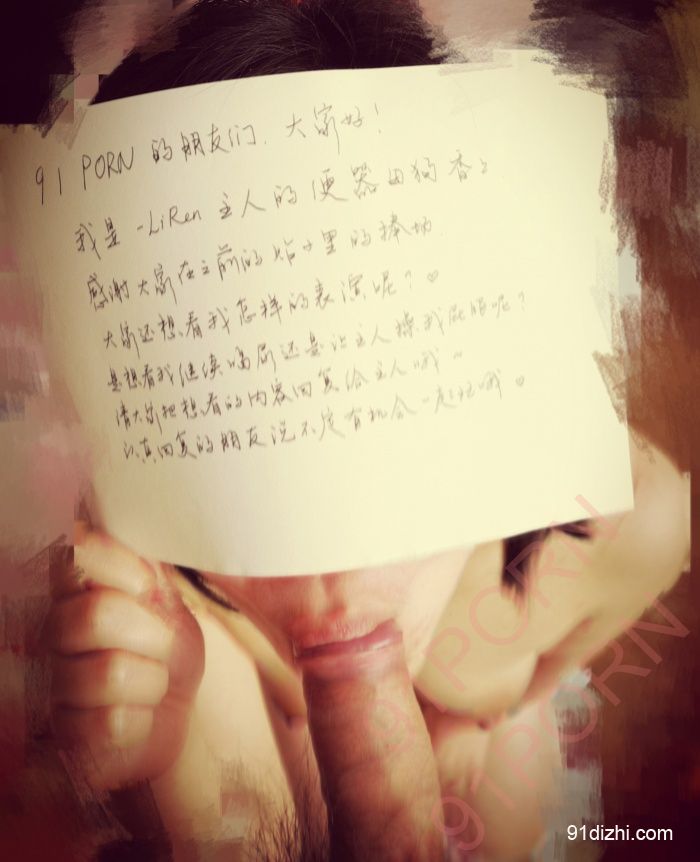 91 PORN 的朋友们、大家好！
我是-LiRen 主人的便器母狗香
感谢大家在之前的帖子里的捧场.
大家还想看我怎样的表演呢？♥
是想看我继续喝尿还是让主人操我屁眼呢？
请大家把想看的内容回复给主人哦~
认真回复的朋友说不定有机会一起玩哦♥
91PORN
91PORN
91dizhi.com